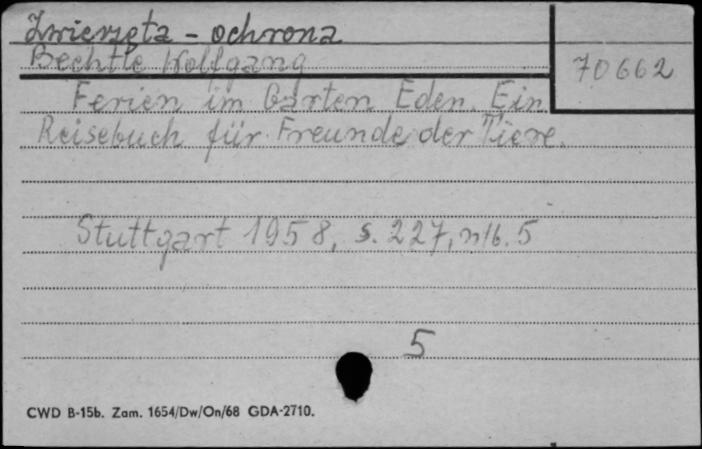 Zwierzęta - ochrona
Bechtle Wolfgang
70662
Ferien im Garten Eden. Ein
Reisebuch für Freunde der Tiere.
Stuttgart 1958, s. 227, nlb. 5
5
CWD B-15b. Zam. 1654/Dw/On/68 GDA-2710.